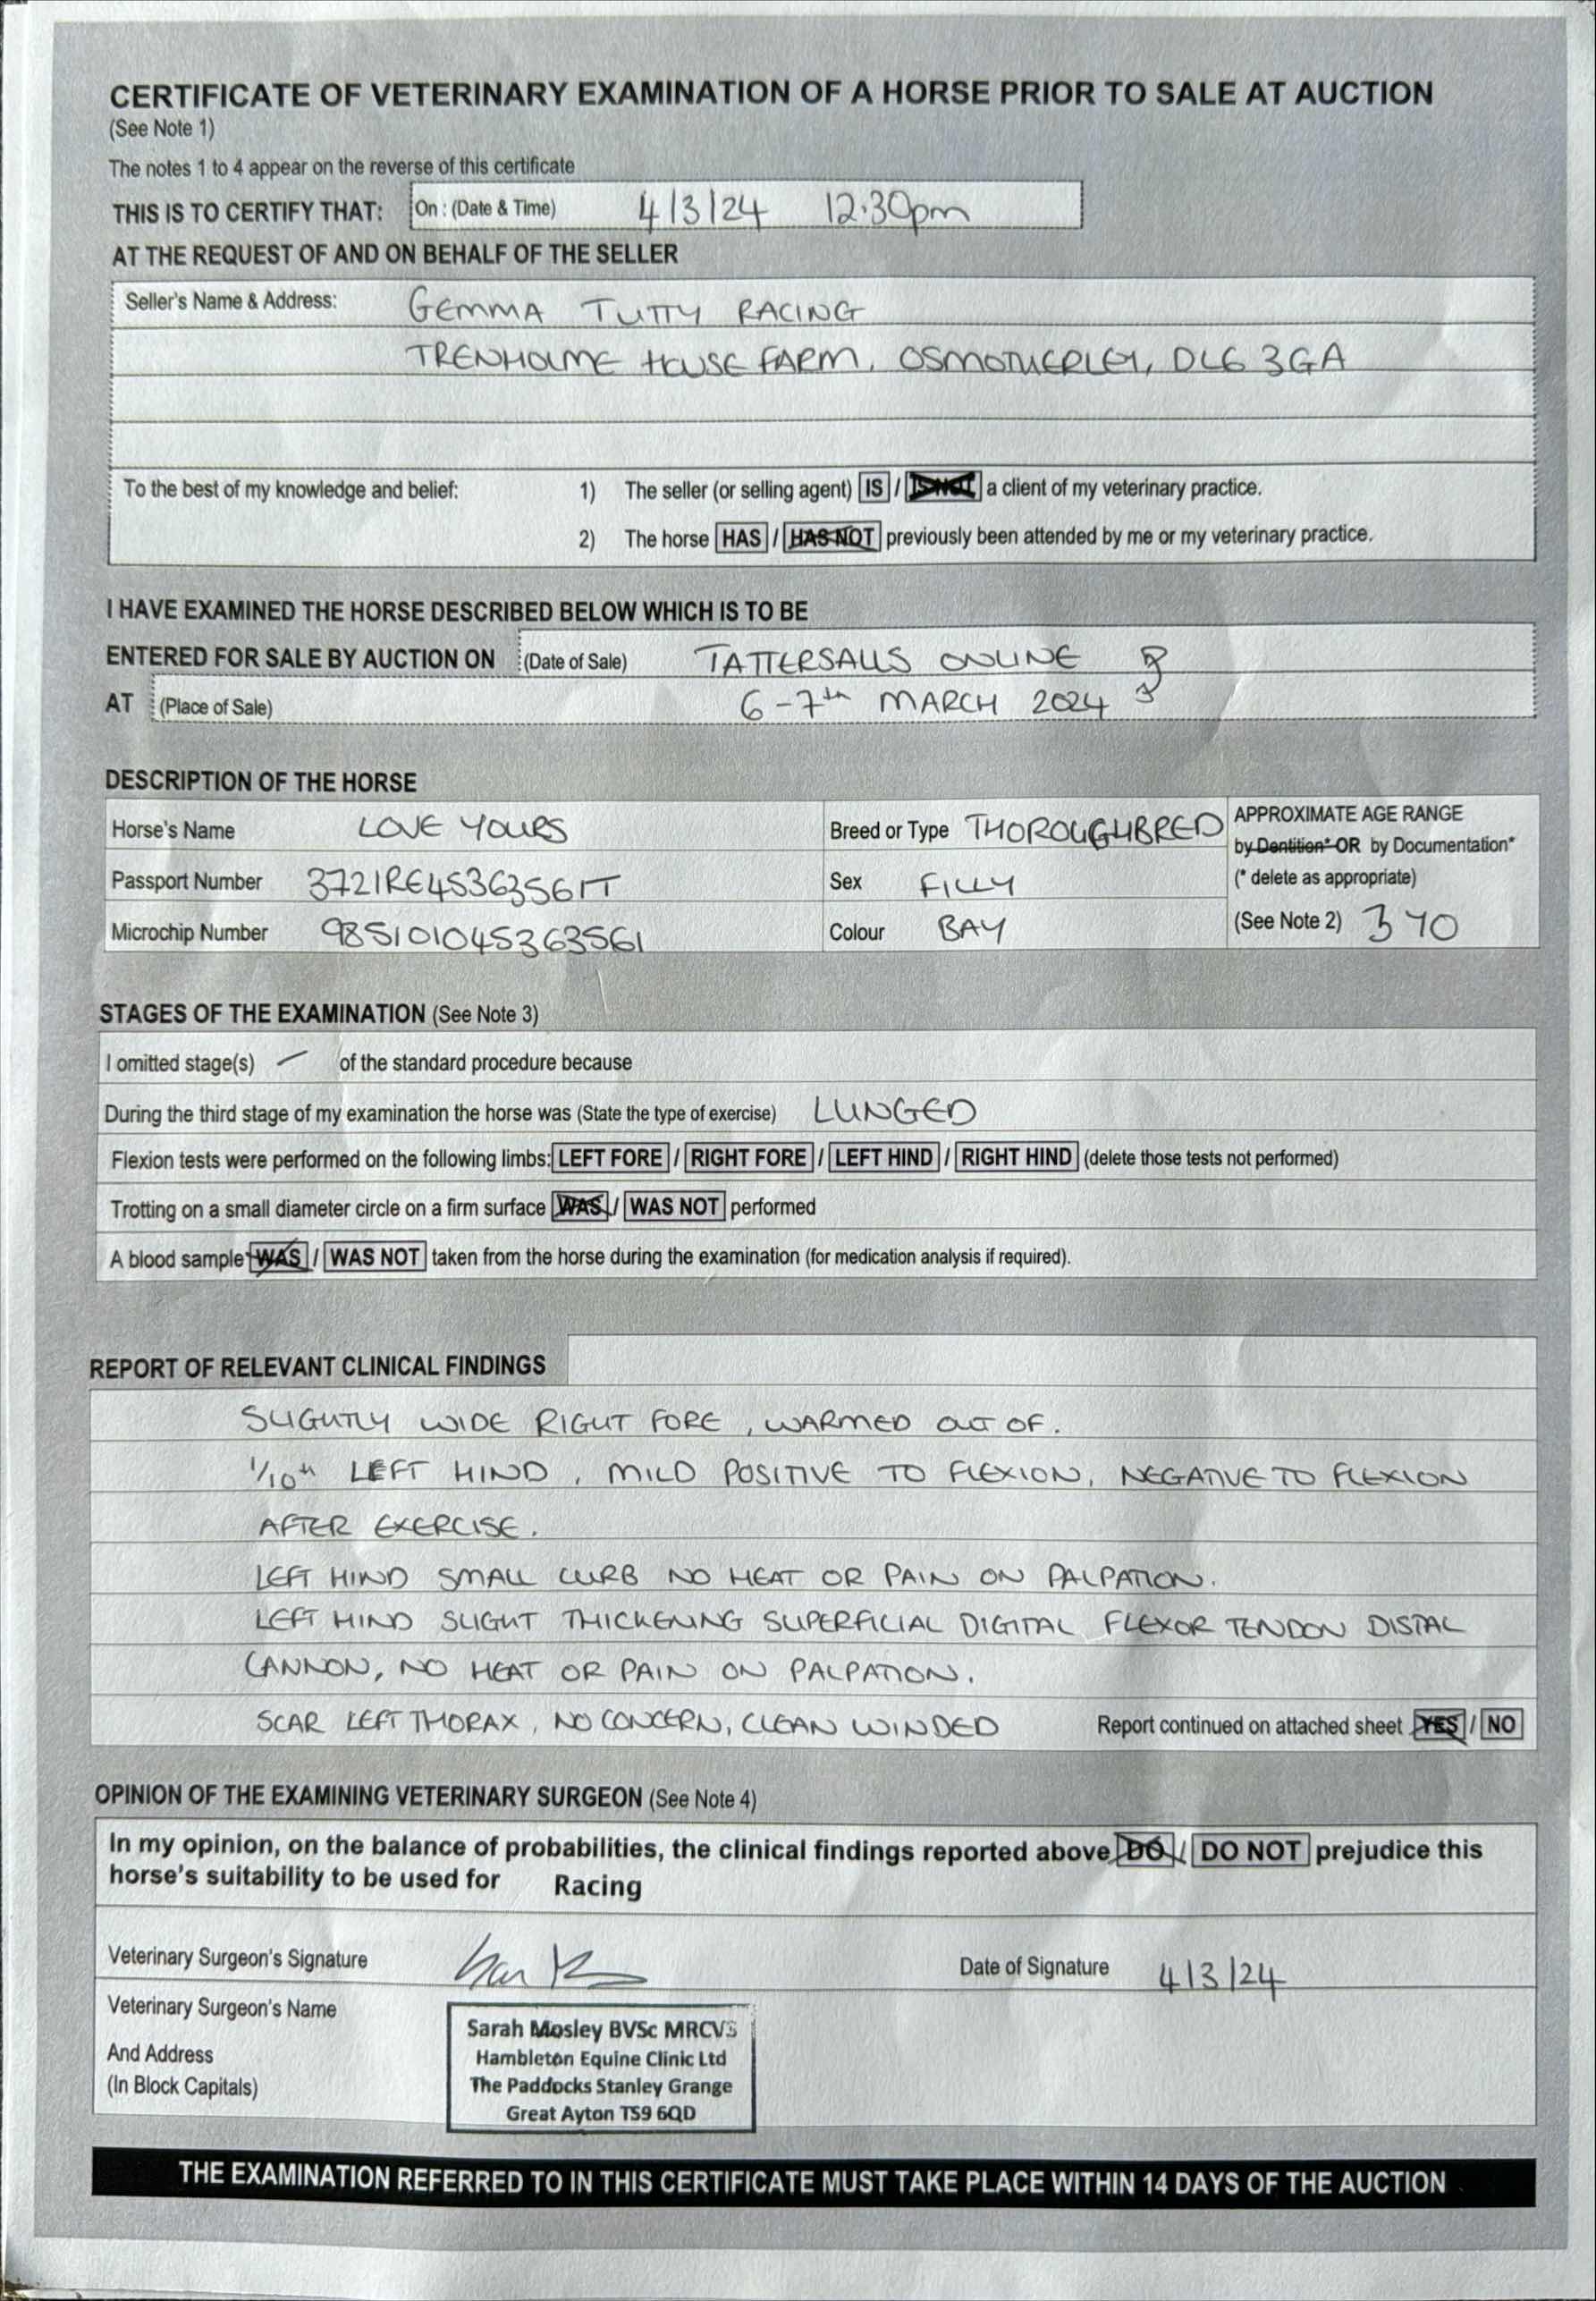 CERTIFICATE OF VETERINARY EXAMINATION OF A HORSE PRIOR TO SALE AT AUCTION
(See Note 1)
The notes 1 to 4 appear on the reverse of this certificate
THIS IS TO CERTIFY THAT: On : (Date & Time) 4/3/24 12.30pm
AT THE REQUEST OF AND ON BEHALF OF THE SELLER
Seller's Name & Address: GEMMA TUTTY RACING
TRENHOLME HOUSE FARM, OSMOTHERLEY, DL6 3GA
To the best of my knowledge and belief: 1) The seller (or selling agent) IS / IS NOT a client of my veterinary practice.
2) The horse HAS / HAS NOT previously been attended by me or my veterinary practice.
I HAVE EXAMINED THE HORSE DESCRIBED BELOW WHICH IS TO BE
ENTERED FOR SALE BY AUCTION ON (Date of Sale) TATTERSALLS ONLINE
AT (Place of Sale) 6-7th MARCH 2024
DESCRIPTION OF THE HORSE
Horse's Name LOVE YOURS Breed or Type THOROUGHBRED APPROXIMATE AGE RANGE
by Dentition* OR by Documentation*
Passport Number 372IRE45363561T Sex FILLY (* delete as appropriate)
Microchip Number 985101045363561 Colour BAY (See Note 2) 3 YO
STAGES OF THE EXAMINATION (See Note 3)
I omitted stage(s) — of the standard procedure because
During the third stage of my examination the horse was (State the type of exercise) LUNGED
Flexion tests were performed on the following limbs: LEFT FORE / RIGHT FORE / LEFT HIND / RIGHT HIND (delete those tests not performed)
Trotting on a small diameter circle on a firm surface WAS / WAS NOT performed
A blood sample WAS / WAS NOT taken from the horse during the examination (for medication analysis if required).
REPORT OF RELEVANT CLINICAL FINDINGS
SLIGHTLY WIDE RIGHT FORE, WARMED OUT OF.
1/10th LEFT HIND, MILD POSITIVE TO FLEXION, NEGATIVE TO FLEXION
AFTER EXERCISE.
LEFT HIND SMALL CURB NO HEAT OR PAIN ON PALPATION.
LEFT HIND SLIGHT THICKENING SUPERFICIAL DIGITAL FLEXOR TENDON DISTAL
CANNON, NO HEAT OR PAIN ON PALPATION.
SCAR LEFT THORAX, NO CONCERN, CLEAN WINDED Report continued on attached sheet YES / NO
OPINION OF THE EXAMINING VETERINARY SURGEON (See Note 4)
In my opinion, on the balance of probabilities, the clinical findings reported above DO / DO NOT prejudice this
horse's suitability to be used for Racing
Veterinary Surgeon's Signature Date of Signature 4/3/24
Veterinary Surgeon's Name
And Address
(In Block Capitals)
Sarah Mosley BVSc MRCVS
Hambleton Equine Clinic Ltd
The Paddocks Stanley Grange
Great Ayton TS9 6QD
THE EXAMINATION REFERRED TO IN THIS CERTIFICATE MUST TAKE PLACE WITHIN 14 DAYS OF THE AUCTION